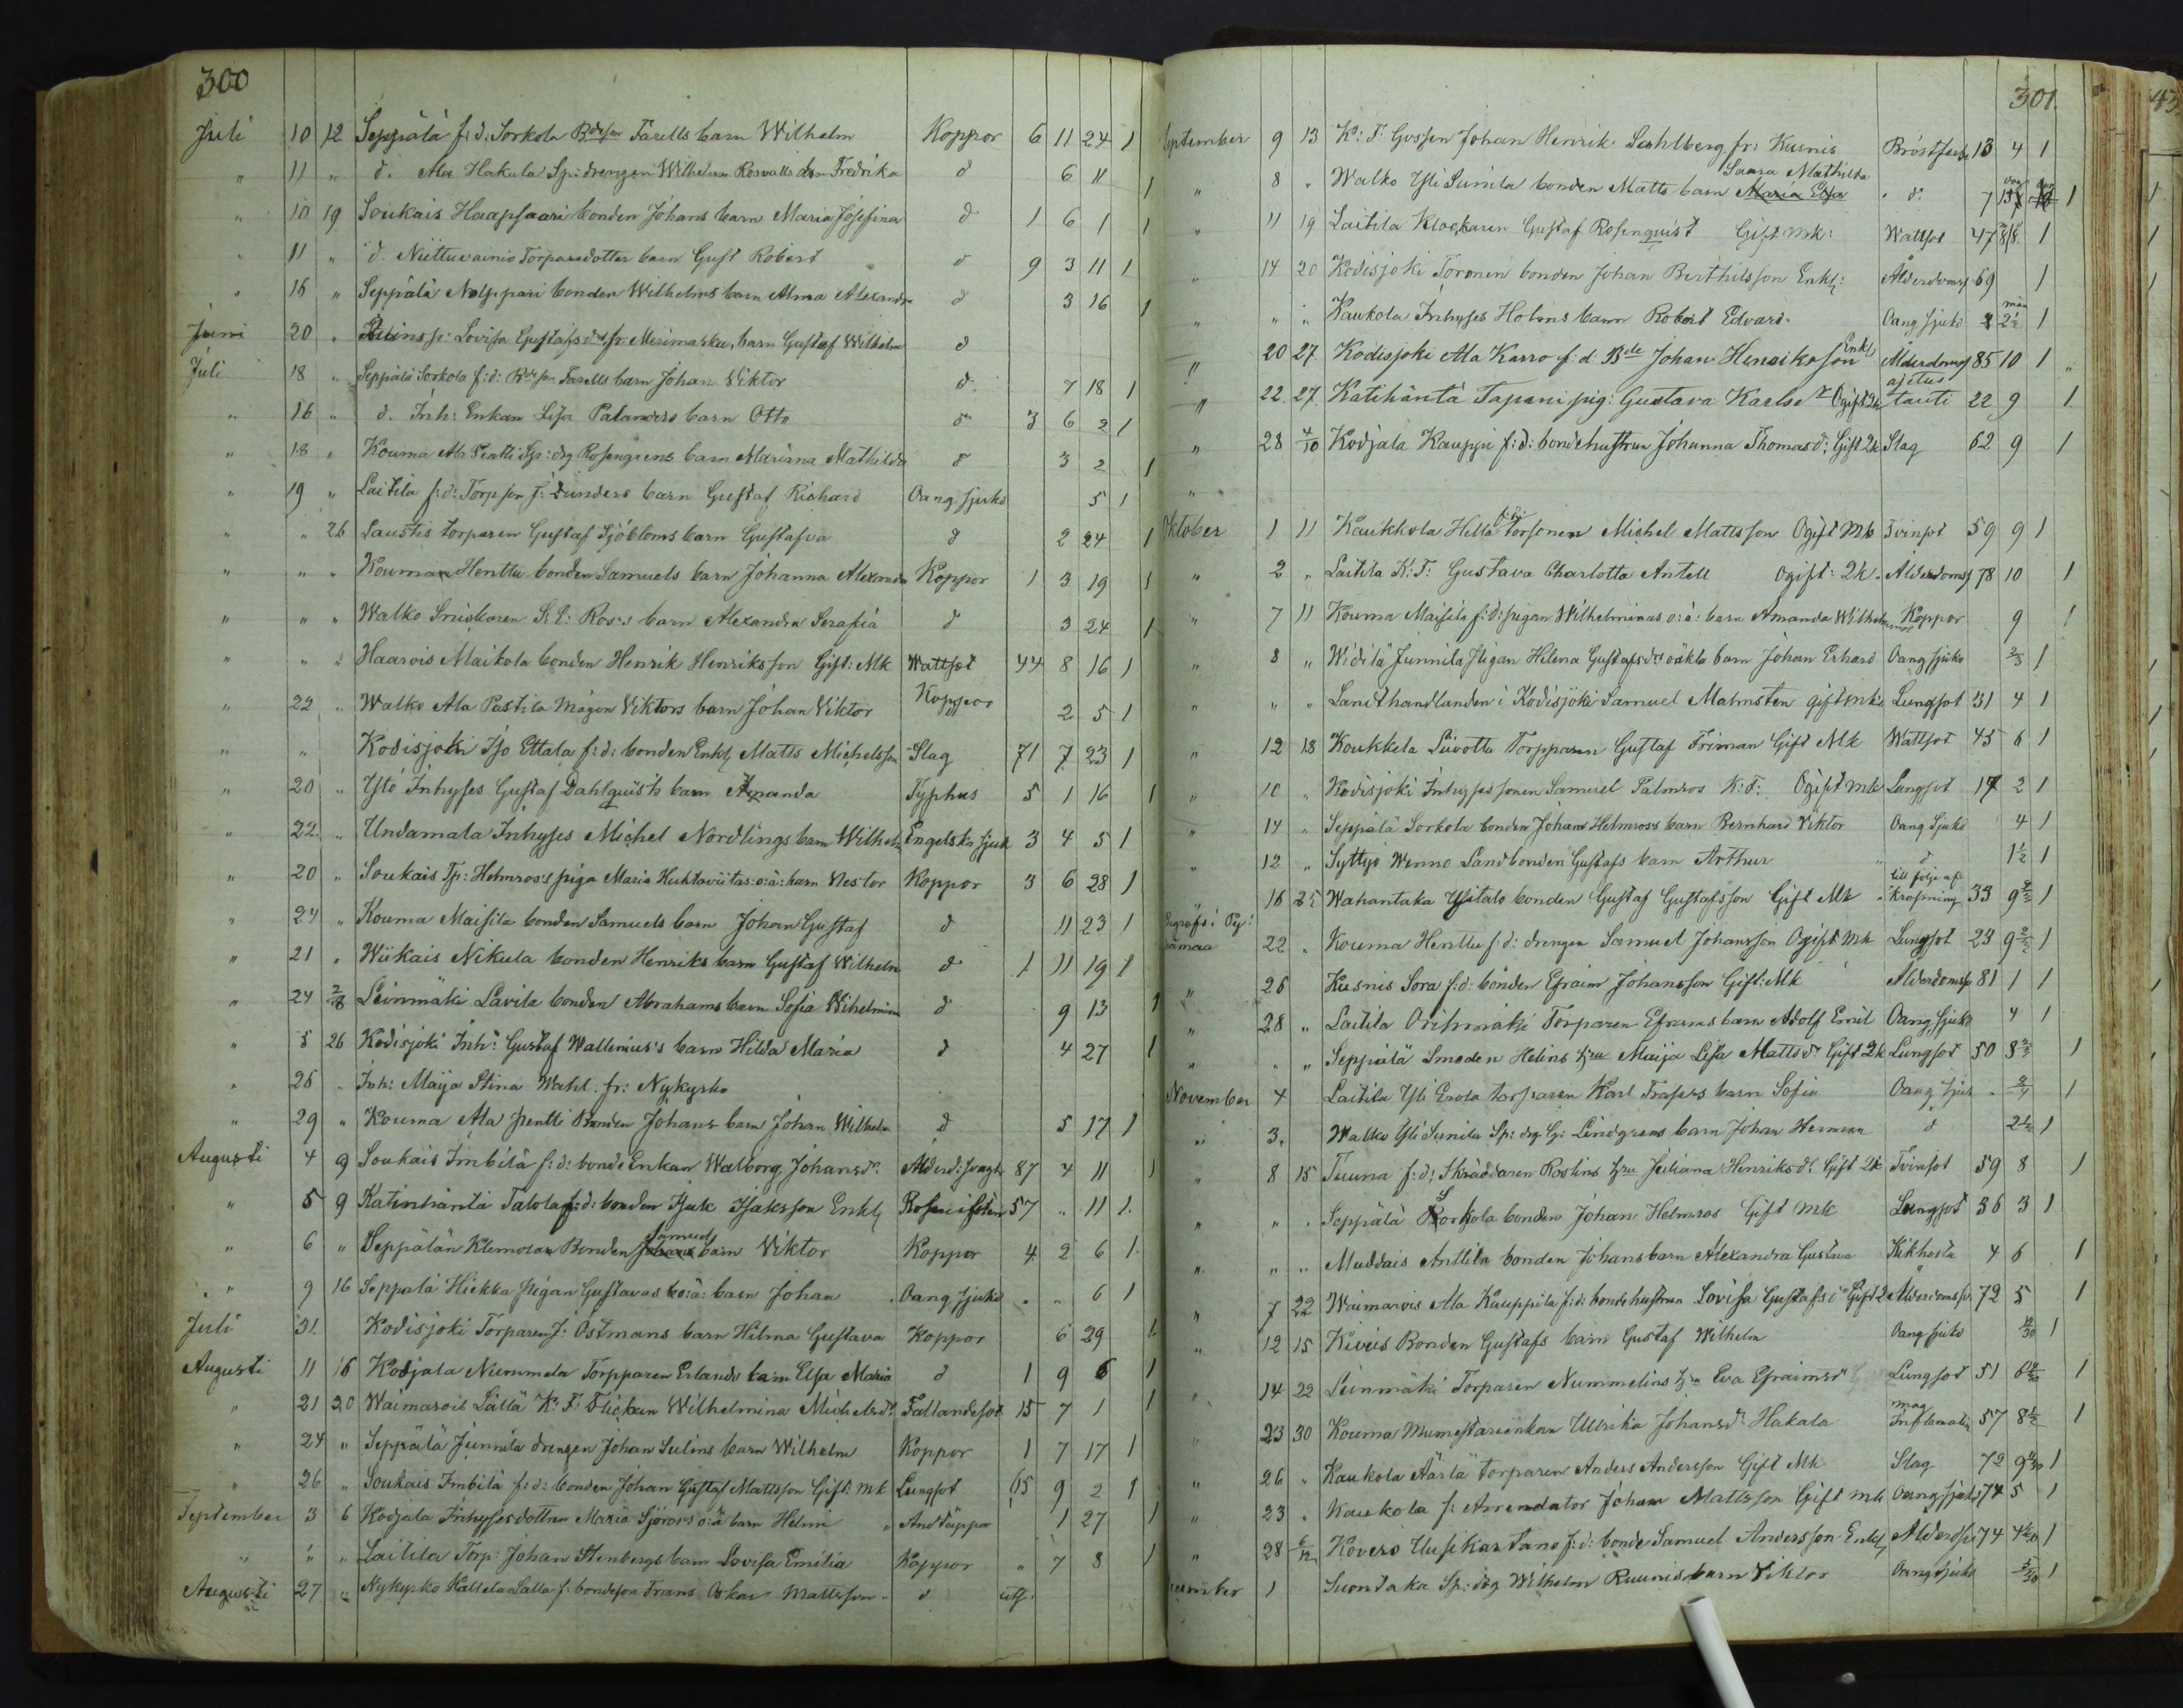 300
Juli 10 12 Seppälä f:d: Sorkola Bdeson Tarells barn Wilhelm Koppor 6 11 24 1
" 11 " d. Ala Hakula Sp: drengen Wilhelm Rosvalls barn Fredrika d 6 11 1
" 10 19 Soukais Haapsaari bonden Johans barn Maria Josefina d 1 6 1 1
" 11 " d. Niettuvainio Torparedotter barn Gust Robert d 9 3 11 1
" 16 " Seppälä Nolppari bonden Wilhelms barn Alma Alexandra d 3 16 1
Juni 20 " Lovisa Gustafsdr fr: Merimasku, barn Gustaf Wilhelm d
Juli 18 " Seppälä Sorkola f:d: Bdeson Tarells barn Johan Viktor d. 7 18 1
" 16 " d. Inh: Enkan Lisa Palanders barn Otto d 3 6 2 1
" 18 " Kouma Ala Pentti Sp: drg Rosengrens barn Mariana Mathilda d 3 2 1
" 19 " Laitila f:d: Torpson J: Sunders barn Gustaf Richard Oang sjukd 5 1
" " 26 Saustis torparen Gustaf Sjöbloms barn Gustafva d 2 24 1
" " " Kouman Henttu bonden Samuels barn Johanna Alexandra Koppor 1 3 19 1
" " " Walko Snickaren S: E: Ros's barn Alexandra Serafia d 3 24 1
" " " Haarois Maikola bonden Henrik Henriksson Gift: Mk Wattsot 44 8 16 1
" 22 " Walko Ala Pastila Mågen Viktors barn Johan Viktor Koppor 2 5 1
" " Kodisjoki Iso Ettala f:d: bonden Enkl Matts Michelsson Slag 71 7 23 1
" 20 " Ystö Inhyses Gustaf Dahlquists barn Amanda Typhus 5 1 16 1
" 22 " Undamala Inhyses Michel Nordlings barn Wilhelm Engelska sjuk 3 4 5 1
" 20 " Soukais Tp: Helmros's piga Maria Huhtaviitas o:ä: barn Nestor Koppor 3 6 28 1
" 24 " Kouma Maisila bonden Samuels barn Johan Gustaf d 11 23 1
" 21 " Wiikais Nikula bonden Henriks barn Gustaf Wilhelm d 1 11 19 1
" 24 2/8 Leinmäki Lavila bonden Abrahams barn Sofia Wilhelmina d 9 13 1
" 5 26 Kodisjoki Inh: Gustaf Wallenius's barn Hilda Maria d 4 27 1
" 25 " Inh: Maija Stina Wahl. fr: Nykyrko
" 29 " Kouma Ala Pentti Bonden Johans barn Johan Wilhelm d 5 17 1
Augusti 4 9 Soukais Imbilä f:d: bonde Enkan Walborg Johansdr Ålderd: svagh 87 4 11 1
" 5 9 Katinhänta Talola f:d: bonden Isak Isaksson Enkl 57 " 11 1
" 6 " Seppälän Klemolan Bonden Samuel barn Viktor Koppor 4 2 6 1
" 9 16 Seppälä Hiekka pigan Gustavas o:ä: barn Johan Oang sjukd " " 6 1
Juli 31 Kodisjoki Torparen J: Ostmans barn Hilma Gustava Koppor 6 29 1
Augusti 11 16 Kodjala Nummela Torpparen Erlands barn Elsa Maria d 1 9 6 1
" 21 20 Waimarois Lällä K: F: Flickan Wilhelmina Michelsdr Fallandesot 15 7 1 1
" 24 " Seppälä Junnila drengen Johan Sulins barn Wilhelm Koppor 1 7 17 1
" 26 " Soukais Imbilä f:d: bonden Johan Gustaf Mattsson Gift: mk Lungsot 65 9 2 1
September 3 6 Kodjala Inhysesdottren Maria Sjöros's o:ä barn Helmi Andtäppa 1 27 1
" " " Laitila Torp: Johan Stenbergs barn Lovisa Emilia Koppor " 7 8 1
Augusti 27 " Nykyrko Kattelan Salla f: bondeson Frans Oskar Mattsson d
301
September 9 13 K: F: Gossen Johan Henrik Sahlberg fr: Kusnis Bröstfeber 13 4 1
" 8 " Walko Yli Sunila bonden Matts barn Saara Mathilda Maria Elsa d: 7 1
" 11 19 Laitila Klockaren Gustaf Rosenquist Gift mk: Wattsot 47 1
" 14 20 Kodisjoki Toronen bonden Johan Berthilsson Enkl: Ålderdomsv 69 1
" " " Kaukola Inhyses Holms barn Robert Edvard. Oang sjukd 2½ mån 1
" 20 27 Kodisjoki Ala Karro f:d Bde Johan Henriksson Enkl Ålderdomsv 85 10 1
" 22 27 Katihäntä Tapani pig: Gustava Karlsdr Ogift 2k ajetus tauti 22 9 1
" 28 4/10 Kodjala Kauppi f:d: bondehustrun Johanna Thomasd: Gift 2k Slag 62 9 1
"
Oktober 1 11 Kaukkola Hella f:d: torsonen Michel Mattsson Ogift Mk Tvinsot 59 9 1
" 2 " Laitila K: F: Gustava Charlotta Antell Ogift: 2k. Ålderdomsv 78 10 1
" 7 11 Kouma Maisila f:d: pigan Wilhelminas o:ä: barn Amanda Wilhelmina Koppor 9 1
" 8 " Widilä Junnila pigan Helena Gustafsdr oäkta barn Johan Erhard Oang sjukd 2/3 1
" " " Landthandlanden i Kodisjoki Samuel Malmsten gift mk: Lungsot 31 4 1
" 12 18 Koukkela Livottu Torpparen Gustaf Friman Gift Mk Wattsot 45 6 1
" 10 " Kodisjoki Inhysessonen Samuel Palmros K: F: Ogift mk Lungsot 17 2 1
" 14 " Seppälä Sorkola bonden Johan Helmross barn Bernhard Viktor Oang Sjukd 4 1
" 12 " Syttyö Winno Landbonden Gustafs barn Arthur d 1½ 1
16 25 Wahantaka Ylitalo bonden Gustaf Gustafsson Gift Mk till följe af Krossning 33 9 1
Begrafs i Py: 
22 " Kouma Henttu f:d: drengen Samuel Johansson Ogift Mk Lungsot 23 9 1
" 26 Kusnis Sora f:d: bonden Efraim Johansson Gift: Mk Ålderdomsv 81 1 1
" 28 " Laitila Orihmäki Torparen Eframs barn Adolf Emil Oang sjukd 4 1
" " " Seppälä Smeden Helins hru Maija Lisa Mattsdr Gift 2k Lungsot 50 8 1
November 4 Laitila Yli Erola torparen Karl Trafers barn Sofia Oang sjuk 1
" 3. Walko Yli Sunila Sp: drg G: Lindgrens barn Johan Herman d 2½ 1
" 8 15 Tuuna f:d: Skräddaren Roslins hru Juliana Henriksdr Gift 2k Tvinsot 59 8 1
" " " Seppälä Sorkola bonden Johan Helmros Gift Mk Lungsot 36 3 1
" " " Muddais Anttila bonden Johans barn Alexandra Gustava Kikhosta 4 6 1
" 7 22 Waimarois Ala Kauppila f:d: bondehustrun Lovisa Gustafsdr Gift 2 Ålderdomsv 72 5 1
" 12 15 Kivus Bonden Gustafs barn Gustaf Wilhelm Oang sjukd 1
" 14 22 Leinmäki Torparen Nummelins hru Eva Efraimsdr Lungsot 51 6 1
" 23 30 Kouma Murmestarienkan Ullrika Johansdr Hakala mag Inflamation 57 8½ 1
" 26 " Kaukola Äärlä torparen Anders Andersson Gift Mk Slag 72 9 1
" 23 " Kaukola f: Arrendator Johan Mattsson Gift mk Oang sjukd 74 5 1
" 28 6/12 Kovero Uusikartano f:d: bonde Samuel Andersson Enkl Ålderdsv 74 4 1
December 1 Suontaka Sp: drg Wilhelm Ruunis barn Viktor Oang sjukd 5/30 1
43